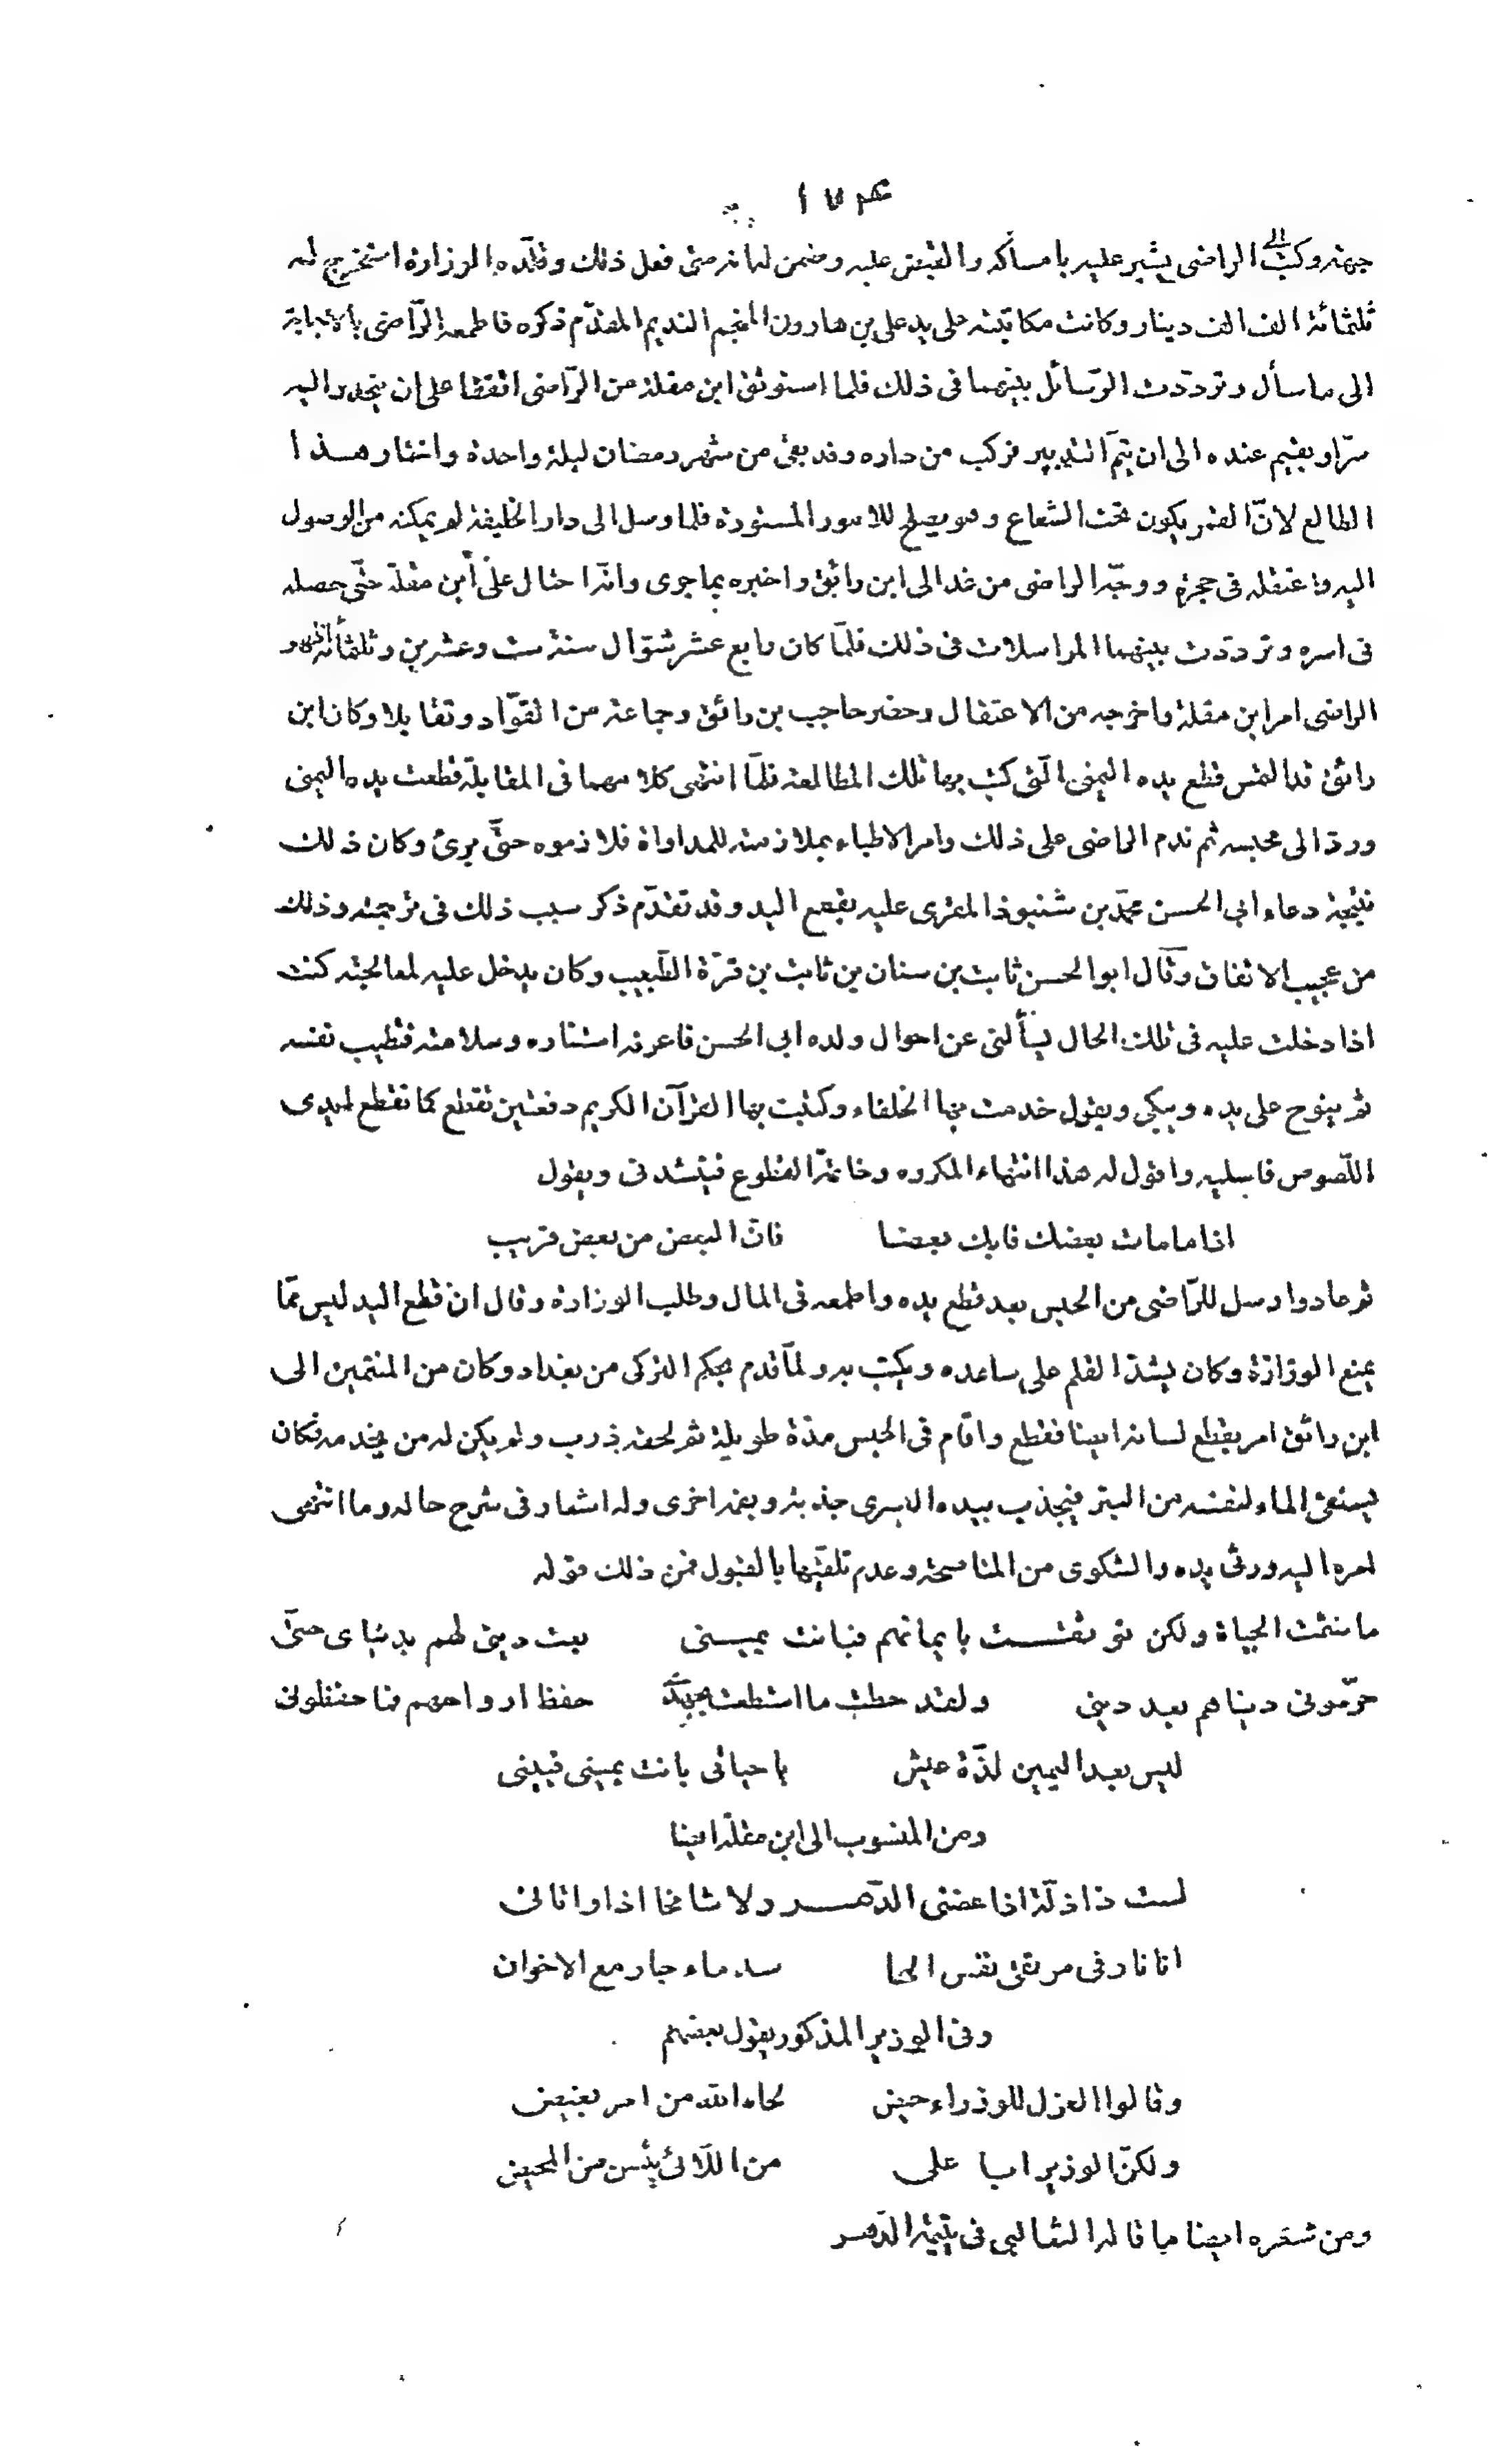 ١٧٤
جهته وكتب الى الراضى يشير عليه بامساكه والقبض عليه وضمن له انه متى فعل ذلك وقلّده الوزارة استخرج له
ثلثمائة الف الف دينار وكانت مكاتبته على يد على بن هارون المنجم النديم المقدّم ذكره فاطمعه الرّاضى بالاجابة
الى ما سأل وتردّدت الرسائل بينهما فى ذلك فلما استوثق ابن مقلة من الرّاضى اتفقا على ان ينحدر اليه
سرّا ويقيم عنده الى ان يتمّ التدبير فركب من داره وقد بقى من شهر رمضان ليلة واحدة واختار هذا
الطالع لانّ القمر يكون تحت الشعاع وهو يصلح للامور المستورة فلما وصل الى دار الخليفة لم يمكنه من الوصول
اليه واعتقله فى حجرة ووجّه الراضى من غد الى ابن رائق واخبره بما جرى وانّه احتال على ابن مقلة حتّى حصله
فى اسره وتردّدت بينهما المراسلات فى ذلك فلمّا كان رابع عشر شوّال سنة ست وعشرين وثلثمائة اظهر
الراضى امر ابن مقلة واخرجه من الاعتقال وحضر حاجب بن رائق وجماعة من القوّاد وتقابلا وكان ابن
رائق قد التمس قطع يده اليمنى التى كتب بها تلك المطالعة فلمّا انتهى كلامهما فى المقابلة قطعت يده اليمنى
وردّ الى محبسه ثم ندم الراضى على ذلك وامر الاطباء بملازمته للمداواة فلازموه حتّى برئ وكان ذلك
نتيجة دعاء ابى الحسن محمّد بن شنبوذ المقرى عليه بقطع اليد وقد تقدّم ذكر سبب ذلك فى ترجمته وذلك
من عجيب الاتفاق وقال ابو الحسن ثابت بن سنان بن ثابت بن قرّة الطّبيب وكان يدخل عليه لمعالجته كنت
اذا دخلت عليه فى تلك الحال يسألنى عن احوال ولده ابى الحسن فاعرفه استتاره وسلامته فتطيب نفسه
ثم ينوح على يده ويبكى ويقول خدمت بها الخلفاء وكتبت بها القرآن الكريم دفعتين تقطع كما تقطع ايدى
اللّصوص فاسليه واقول له هذا انتهاء المكروه وخاتمة القطوع فينشدنى ويقول
اذا ما مات بعضك فابك بعضا فانّ البعض من بعض قريب
ثم عاد وارسل للرّاضى من الحبس بعد قطع يده واطمعه فى المال وطلب الوزارة وقال ان قطع اليد ليس ممّا
يمنع الوزارة وكان يشدّ القلم على ساعده ويكتب به ولمّا قدم بجكم التركى من بغداد وكان من المنتمين الى
ابن رائق امر بقطع لسانه ايضا فقطع واقام فى الحبس مدّة طويلة ثم لحقه ذرب ولم يكن له من يخدمه فكان
يستقى الماء لنفسه من البئر فيجذب بيده اليسرى جذبة وبفمه اخرى وله اشعار فى شرح حاله وما انتهى
امره اليه ورثى يده والشكوى من المناصحة وعدم تلقّيها بالقبول فمن ذلك قوله
ما سئمت الحياة ولكن توثقت بايمانهم فبانت يمينى بعت دينى لهم بدنياى حتّى
حرّمونى دنياهم بعد دينى ولقد حطت ما استطعت بجهدى حفظ ارواحهم فما حفظونى
ليس بعد اليمين لذّة عيش يا حياتى بانت يمينى فبينى
ومن المنسوب الى ابن مقلة ايضا
لست ذا ذلّة اذا عضنى الدّهر ولا شامخا اذا واتانى
انا نار فى مرتقى نفس الحا سد ماء جار مع الاخوان
وفى الوزير المذكور يقول بعضهم
وقالوا العزل للوزراء حيض لحاه الله من امر بغيض
ولكنّ الوزير ابا على من اللّائى يئسن من المحيض
ومن شعره ايضا ما قاله الثعالبى فى يتيمة الدّهر